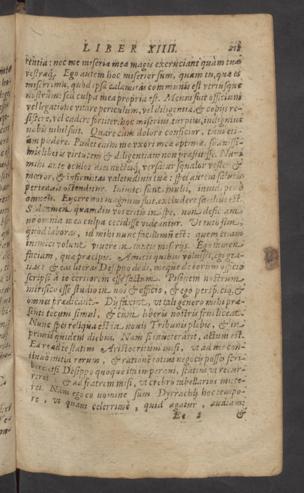 LIBER XIIII. 218
rentia: nec me miseria mea magis excruciant quàm tua
vestraq́;. Ego autem hoc miserior sum, quàm tu, quae es
miserrima, quòd ipsa calamitas communis est vtriusque
nostrûm: sed culpa mea propria est. Meum fuit officium
vel legatione vitare periculum, vel diligentia, & copiis re-
sistere, vel cadere fortiter. hoc miserius, turpius, indignius
nobis nihil fuit. Quare cùm dolore conficior, tum eti-
am pudore. Pudet enim me vxori meae optimae, suauissi-
mis liberis virtutem & diligentiam non praestitisse. Nam
mihi ante oculos dies noctesq́; versatur squalor vester &
moeror, & infirmitas valetudinis tuae: spes autem salutis
pertenuis ostenditur. Inimici sunt multi, inuidi penè
omnes. Eijcere nos magnum fuit, excludere facile est.
Sed tamen quamdiu vos eritis in spe, non deficiam,
ne omnia mea culpa cecidisse videantur. Vt tutò sim,
quòd laboras, id mihi nunc facillimum est: quem etiam
inimici volunt viuere in tantis miserijs. Ego tamen
faciam, quae praecipis. Amicis quibus voluisti, egi gra-
tias: & eas literas Dexippo dedi, meque de eorum officio
scripsi à te certiorem esse factum. Pisonem nostrum
mirifico esse studio in nos & officio, & ego perspicio, &
omnes praedicant. Dij faxint, vt tali genero mihi prae-
senti tecum simul, & cum liberis nostris frui liceat.
Nunc spes reliqua est in nouis Tribunis plebis, & in
primis quidem diebus. Nam si inueterarit, actum est.
Ea re ad te statim Aristocritum misi, vt ad me con-
tinuò initia rerum, & rationem totius negocij posses scri-
bere. etsi Dexippo quoque ita imperaui, statim vt recur-
reret: & ad fratrem misi, vt crebrò tabellarios mitte-
ret. Nam ego eo nomine sum Dyrrachij hoc tempo-
re, vt quàm celerrimè, quid agatur, audiam:
Ee 2 &